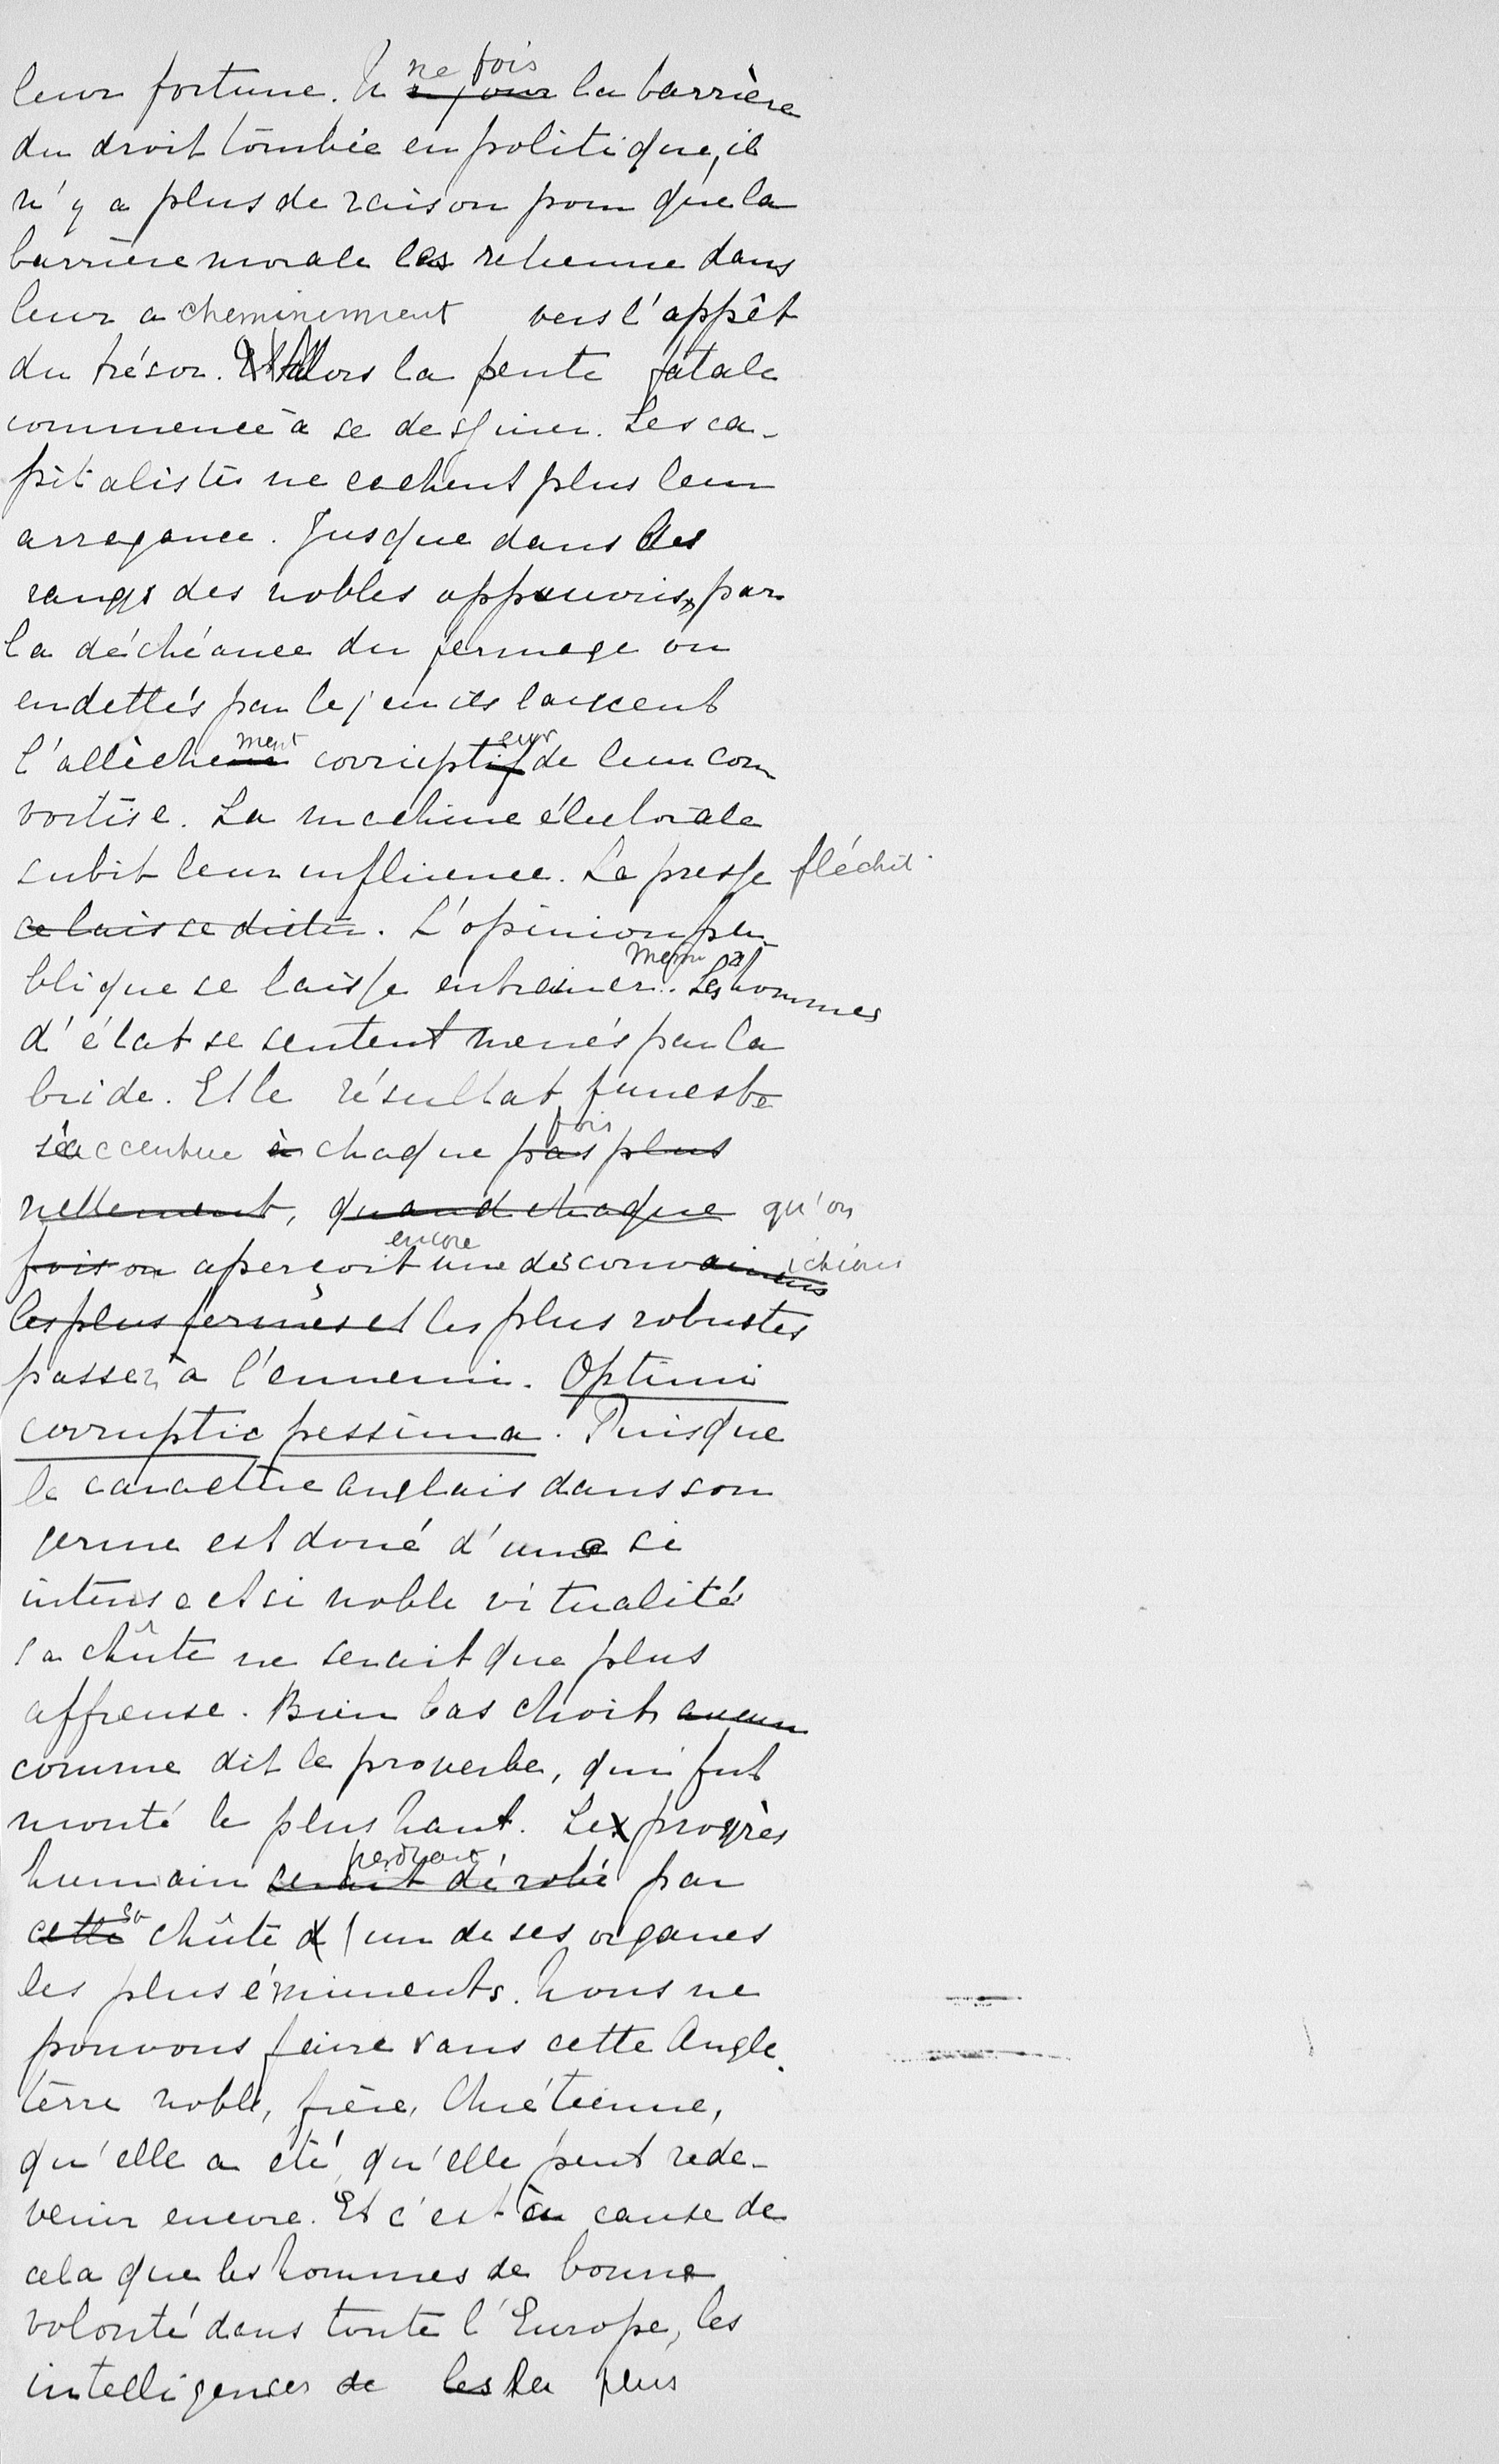 leur fortune. Une fois la barrière
du droit tombée en politique, il
n'y a plus de raison pour que la
barrière morale les retienne dans
leur acheminement vers l'appêt
du trésor. Alors la pente fatale
commence à se dessiner. Les ca-
pitalistes ne cachent plus leur
arrogance. Jusque dans les
rangs des nobles appauvris, par
la déchéance du fermage ou
endettés par le jeu ils lancent
l'allèchement corrupteur de leur con
voitise. La machine électorale
subit leur influence. La presse fléchit.
se laisse dicter. L'opinion pu-
blique se laisse entrainer. Même les hommes
d'état se sentent menés par la
bride. Et le résultat funeste
s'accentue à chaque fois pas plus
nettement, quand chaque qu'on
fois on aperçoit encore une des convictions
les plus fermes et les plus robustes
passer à l'ennemi. Optimi
corruptio pessima. Puisque
le caractère anglais dans son
germe est doué d'une si
intense et si noble vitualité
sa chûte ne serait que plus
affreuse. Bien bas choit aucun
comme dit le proverbe, qui fut
monté le plus haut. Le progrès
humain perdrait serait dérobé par
cette sa chûte un de ses organes
les plus éminents. Nous ne
pouvons faire sans cette Angle-
terre noble, fière, Chrétienne,
qu'elle a été, qu'elle peut rede-
venir encore. Et c'est à cause de
cela que les hommes de bonne
volonté dans toute l'Europe, les
intelligences de les plus